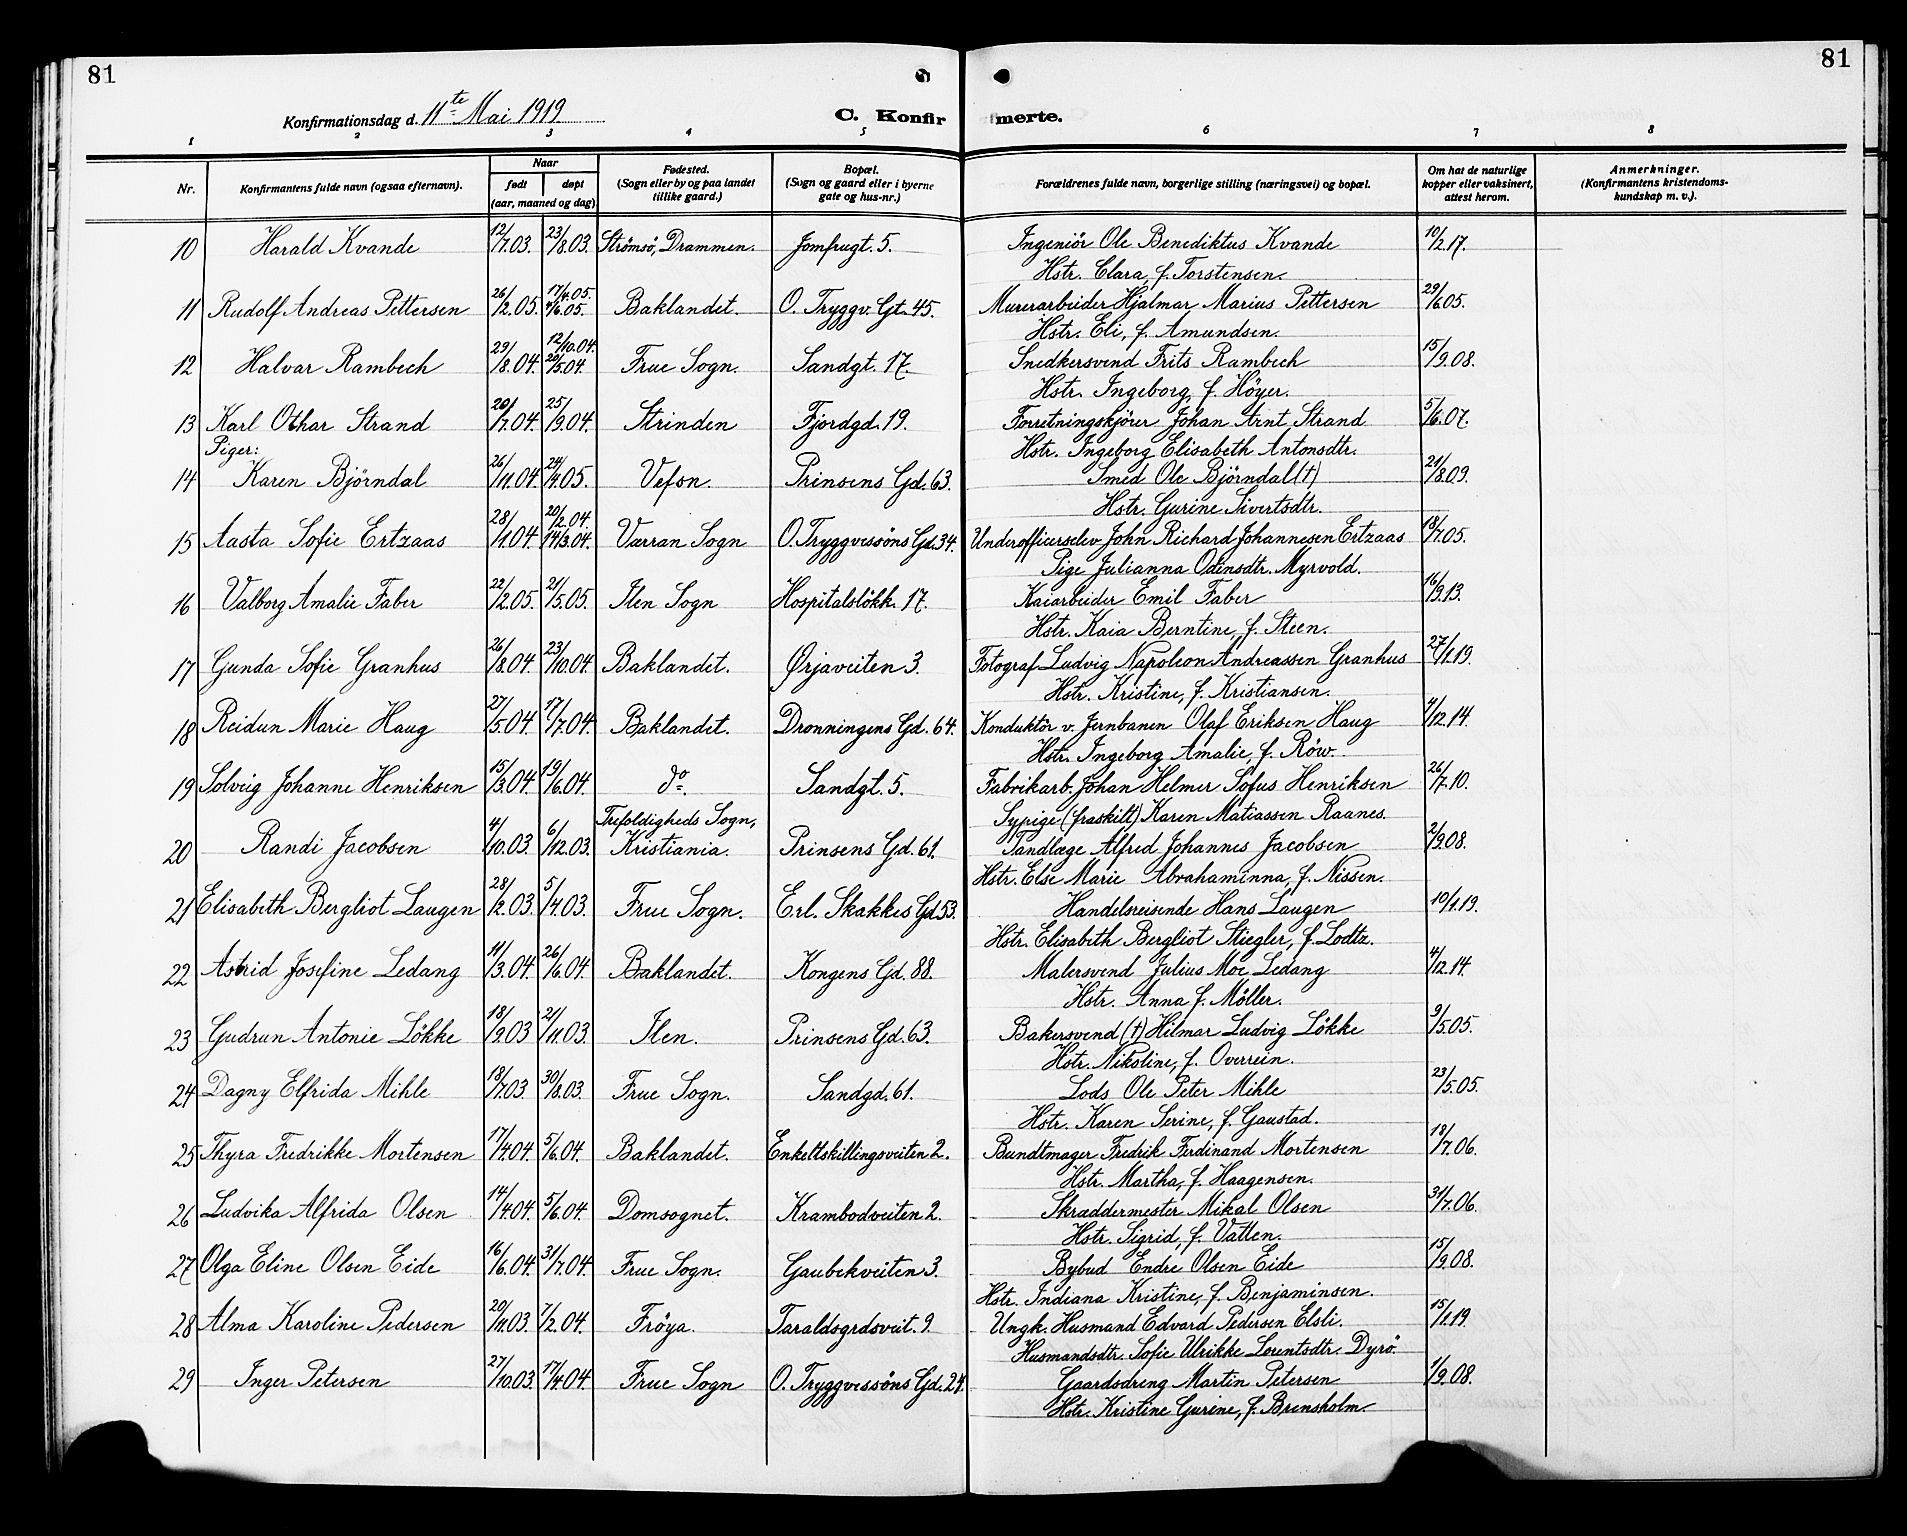 81
81
Konfirmationsdag d. 11te Mai 1919
C. Konfirmerte.
1 2 3 4 5 6 7 8
Nr. Konfirmantens fulde navn (ogsaa efternavn). Naar født døpt (aar, maaned og dag) Fødested. (Sogn eller by og paa landet tillike gaard.) Bopæl. (Sogn og gaard eller i byerne gate og hus-nr.) Forældrenes fulde navn, borgerlige stilling (næringsvei) og bopæl. Om hat de naturlige kopper eller vaksinert, attest herom. Anmerkninger. (Konfirmantens kristendomskundskap m. v.).
10 Harald Kvande 12/7.03. 23/8.03. Strömsö, Drammen. Jomfrugt. 5. Ingeniör Ole Benediktus Kvande 10/2.17.
Hstr. Clara, f. Torstensen.
11 Rudolf Andreas Pettersen 26/2.05. 17/4.05. 4/6.05. Baklandet. O. Tryggv. Gt. 45. Murerarbeider Hjalmar Marius Pettersen 29/6.05.
Hstr. Eli, f. Amundsen.
12 Halvar Rambech 29/8.04. 12/10.04. 20/5.04. Frue Sogn. Sandgt. 17. Snedkersvend Frits Rambech 15/9.08.
Hstr. Ingeborg, f. Höyer.
13 Karl Othar Strand 20/7.04. 25/9.04. Strinden Fjordgd. 19. Forretningskjörer Johan Arnt Strand 5/6.07.
Hstr. Ingeborg Elisabeth Antonsdtr.
Piger:
14 Karen Björndal 26/11.04. 24/4.05. Vefsn. Prinsens Gd. 63. Smed Ole Björndal (†) 21/8.09.
Hstr. Gurine Sivertsdtr.
15 Aasta Sofie Ertzaas 28/1.04. 20/2.04. 14/3.04. Værran Sogn O. Tryggvessöns Gd. 34. Underofficerselev John Richard Johannesen Ertzaas 18/7.05.
Pige Julianna Odinsdtr. Myrvold.
16 Valborg Amalie Faber 22/2.05. 21/5.05. Ilen Sogn Hospitalslökk. 17. Kaiarbeider Emil Faber 16/9.13.
Hstr. Kaia Berntine, f. Steen.
17 Gunda Sofie Granhus 26/8.04. 23/10.04. Baklandet. Ørjaveiten 3. Fotograf Ludvig Napoleon Andreassen Granhus 27/1.19.
Hstr. Kristine, f. Kristiansen.
18 Reidun Marie Haug 27/5.04. 17/7.04. Baklandet. Dronningens Gd. 64. Konduktör v. Jernbanen Olaf Eriksen Haug 4/12.14.
Hstr. Ingeborg Amalie, f. Röw.
19 Solveig Johanne Henriksen 15/3.04. 19/6.04. do. Sandgt. 5. Fabrikarb. Johan Helmer Sofus Henriksen 26/7.10.
Sypige (fraskilt) Karen Matiassen Raanes.
20 Randi Jacobsen 4/10.03. 6/12.03. Trefoldigheds Sogn, Kristiania. Prinsens Gd. 61. Tandlæge Alfred Johannes Jacobsen 2/9.08.
Hstr. Else Marie Abrahaminna, f. Nissen.
21 Elisabeth Bergliot Laugen 28/2.03. 5/4.03. Frue Sogn. Erl. Skakkes Gd. 53. Handelsreisende Hans Laugen 10/1.19.
Hstr. Elisabeth Bergliot Stiegler, f. Lodtz.
22 Astrid Josefine Ledang 11/3.04. 26/6.04. Baklandet. Kongens Gd. 88. Malersvend Julius Moe Ledang 4/12.14.
Hstr. Anna f. Möller.
23 Gudrun Antonie Lökke 18/9.03 21/11.03. Ilen. Prinsens Gd. 63. Bakersvend (†) Hilmar Ludvig Lökke 9/5.05.
Hstr. Nikoline, f. Overrein.
24 Dagny Elfrida Mihle 18/7.03 30/8.03. Frue Sogn. Sandgd. 61. Lods Ole Peter Mihle 23/5.05.
Hstr. Karen Serine, f. Gaustad.
25 Thyra Fredrikke Mortensen 17/4.04. 5/6.04. Baklandet. Enkeltskillingsveiten 2. Bundtmager Fredrik Ferdinand Mortensen 18/7.06.
Hstr. Martha, f. Haagensen.
26 Ludvika Alfrida Olsen 14/4.04. 5/6.04. Domsognet. Krambodveiten 2. Skræddermester Mikal Olsen 31/7.06.
Hstr. Sigrid, f. Vatten.
27 Olga Eline Olsen Eide 16/6.04. 31/7.04. Frue Sogn. Gaubekveiten 3. Bybud Endre Olsen Eide 15/9.08.
Hstr. Indiana Kristine, f. Benjaminsen.
28 Alma Karoline Pedersen 20/11.03. 7/2.04. Fröya. Taraldsgrdsveit. 9. Ungk. Husmand Edvard Pedersen Elsli. 15/1.19.
Husmandsdtr. Sofie Ulrikke Lorentsdtr. Dyrö.
29 Inger Petersen 27/10.03. 17/4.04. Frue Sogn O. Tryggvessöns Gd. 24. Gaardsdreng Martin Petersen 1/9.08.
Hstr. Kristine Gurine, f. Brensholm.